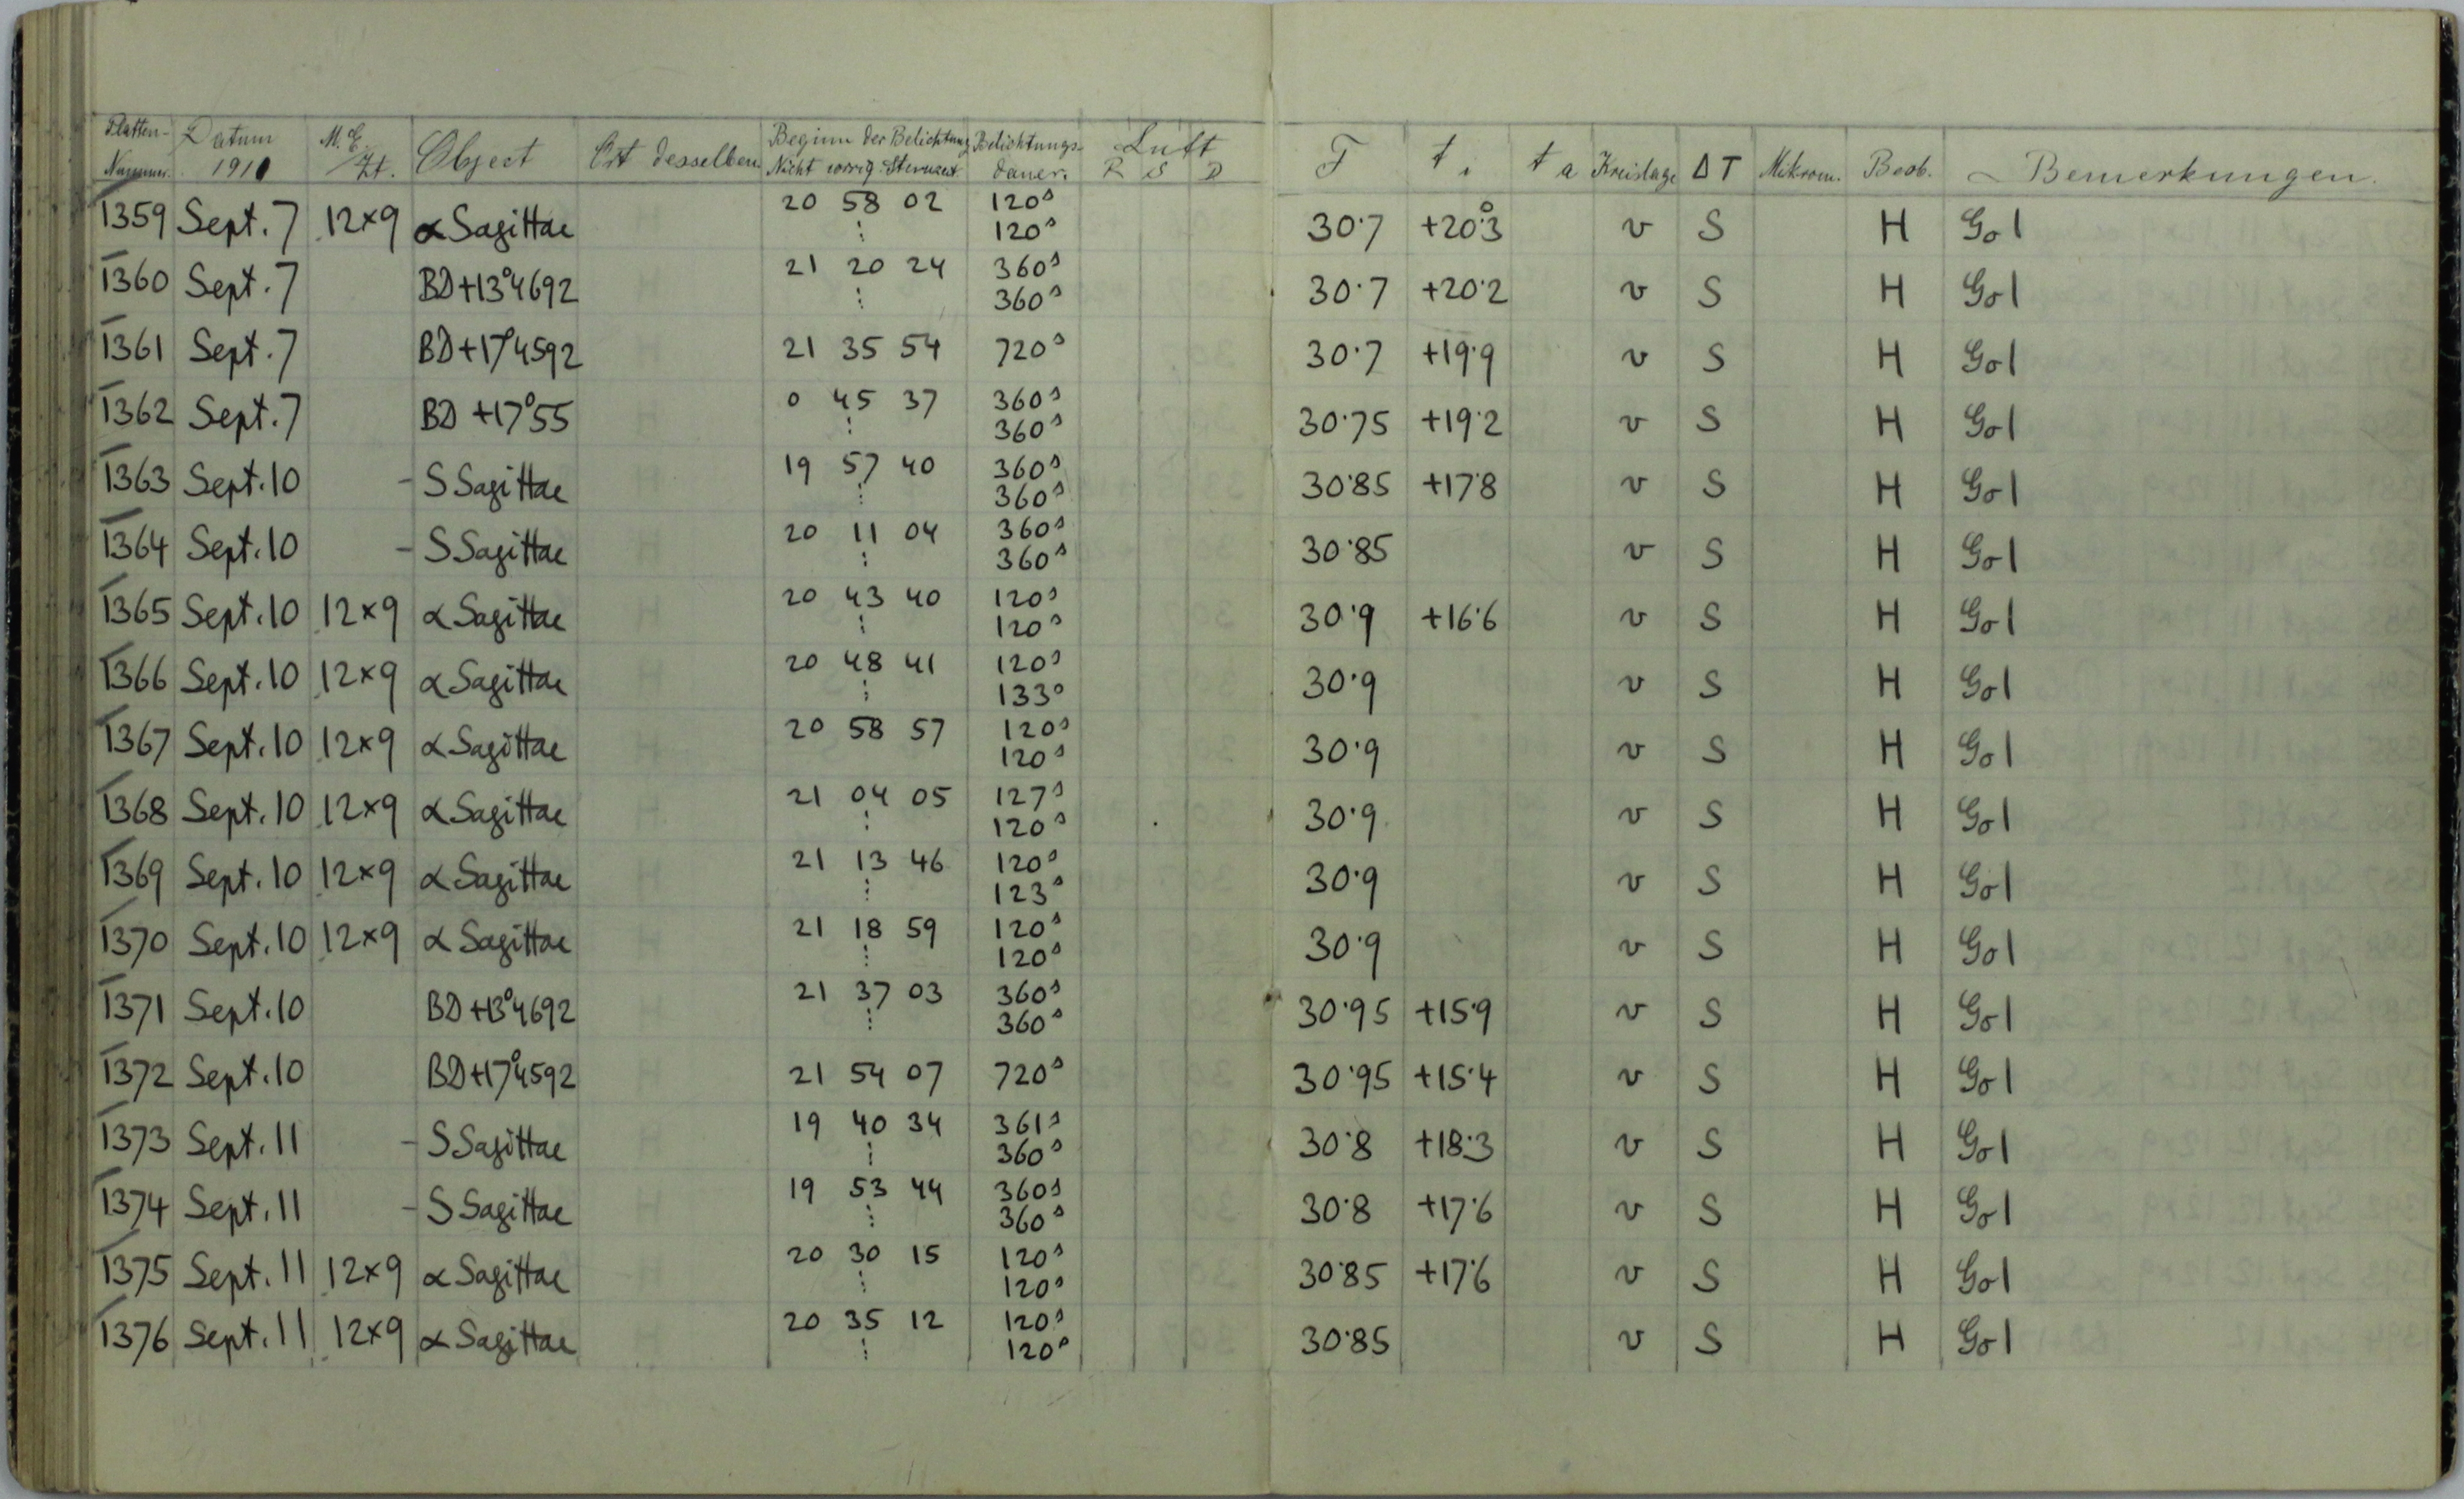 Platten- Nummer. Datum 1910 M. E. Zt. Object Ort desselben Beginn der Belichtung Nicht corrig. Sternzeit Belichtungs- dauer. Luft R S D F t i t a Kreislage ΔT Mikrom. Beob. Bemerkungen.
1359 Sept. 7 12×9 α Sagittae 20 58 02 120ˢ 30·7 +20°3 v S H Gol
⋮ 120ˢ
1360 Sept. 7 BD+13°4692 21 20 24 360ˢ 30·7 +20·2 v S H Gol
⋮ 360ˢ
1361 Sept. 7 BD+17°4592 21 35 54 720ˢ 30·7 +19·9 v S H Gol
1362 Sept. 7 BD +17°55 0 45 37 360ˢ 30·75 +19·2 v S H Gol
⋮ 360ˢ
1363 Sept. 10 - S Sagittae 19 57 40 360ˢ 30·85 +17·8 v S H Gol
⋮ 360ˢ
1364 Sept. 10 - S Sagittae 20 11 04 360ˢ 30·85 v S H Gol
⋮ 360ˢ
1365 Sept. 10 12×9 α Sagittae 20 43 40 120ˢ 30·9 +16·6 v S H Gol
⋮ 120ˢ
1366 Sept. 10 12×9 α Sagittae 20 48 41 120ˢ 30·9 v S H Gol
⋮ 133ˢ
1367 Sept. 10 12×9 α Sagittae 20 58 57 120ˢ 30·9 v S H Gol
120ˢ
1368 Sept. 10 12×9 α Sagittae 21 04 05 127ˢ 30·9 v S H Gol
⋮ 120ˢ
1369 Sept. 10 12×9 α Sagittae 21 13 46 120ˢ 30·9 v S H Gol
⋮ 123ˢ
1370 Sept. 10 12×9 α Sagittae 21 18 59 120ˢ 30·9 v S H Gol
⋮ 120ˢ
1371 Sept. 10 BD+13°4692 21 37 03 360ˢ 30·95 +15·9 v S H Gol
⋮ 360ˢ
1372 Sept. 10 BD+17°4592 21 54 07 720ˢ 30·95 +15·4 v S H Gol
1373 Sept. 11 - S Sagittae 19 40 34 361ˢ 30·8 +18·3 v S H Gol
⋮ 360ˢ
1374 Sept. 11 - S Sagittae 19 53 44 360ˢ 30·8 +17·6 v S H Gol
⋮ 360ˢ
1375 Sept. 11 12×9 α Sagittae 20 30 15 120ˢ 30·85 +17·6 v S H Gol
⋮ 120ˢ
1376 Sept. 11 12×9 α Sagittae 20 35 12 120ˢ 30·85 v S H Gol
⋮ 120ˢ